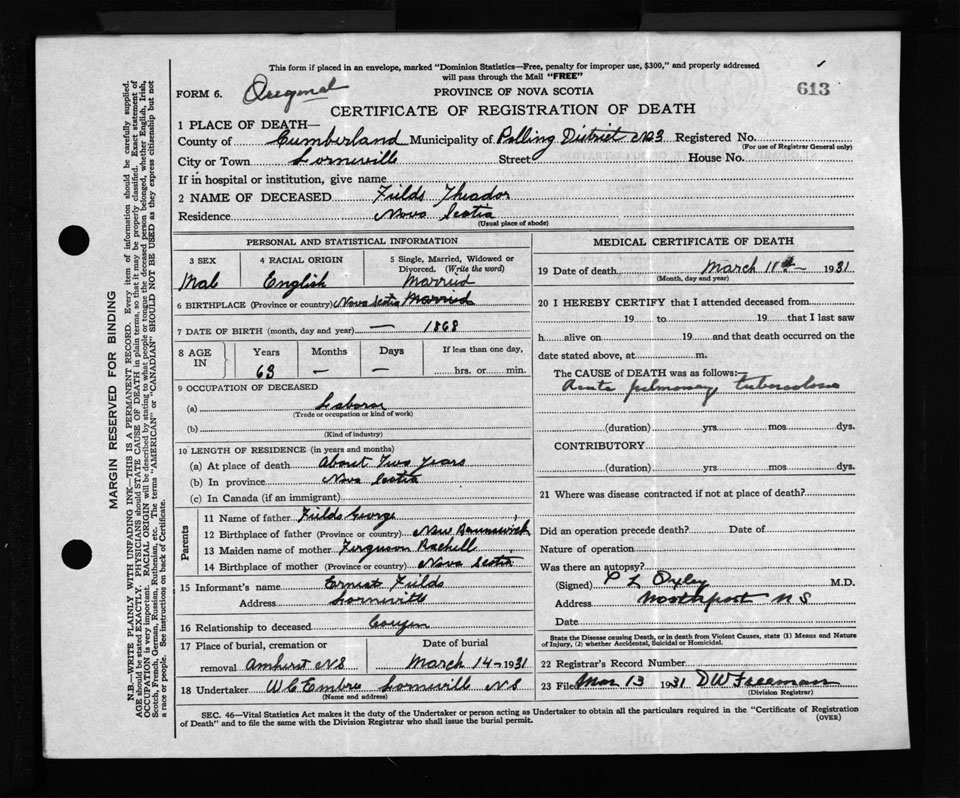 This form if placed in an envelope, marked "Dominion Statistics—Free, penalty for improper use, $300," and properly addressed
will pass through the Mail "FREE"
FORM 6. Original PROVINCE OF NOVA SCOTIA 613
CERTIFICATE OF REGISTRATION OF DEATH
1 PLACE OF DEATH—
County of Cumberland Municipality of Polling District No3 Registered No.
(For use of Registrar General only)
City or Town Lorneville Street House No.
If in hospital or institution, give name
2 NAME OF DECEASED Fields Theador
Residence Nova Scotia
(Usual place of abode)
PERSONAL AND STATISTICAL INFORMATION
3 SEX 4 RACIAL ORIGIN 5 Single, Married, Widowed or
Divorced. (Write the word)
Mal English Married
6 BIRTHPLACE (Province or country) Nova Scotia Married
7 DATE OF BIRTH (month, day and year) — 1868
8 AGE IN Years Months Days If less than one day,
63 — — hrs. or min.
9 OCCUPATION OF DECEASED
(a) Laborer
(Trade or occupation or kind of work)
(b)
(Kind of industry)
10 LENGTH OF RESIDENCE (in years and months)
(a) At place of death About Two years
(b) In province Nova Scotia
(c) In Canada (if an immigrant)
Parents
11 Name of father Fields George
12 Birthplace of father (Province or country) New Brunswick
13 Maiden name of mother Ferguson Rachell
14 Birthplace of mother (Province or country) Nova Scotia
15 Informant's name Ernest Fields
Address Lorneville
16 Relationship to deceased
17 Place of burial, cremation or Date of burial
removal Amherst NS March 14 - 1931
18 Undertaker W C Embree Lorneville NS
(Name and address)
MEDICAL CERTIFICATE OF DEATH
19 Date of death March 11th 1931
(Month, day and year)
20 I HEREBY CERTIFY that I attended deceased from
19 to 19 that I last saw
h alive on 19 and that death occurred on the
date stated above, at m.
The CAUSE OF DEATH was as follows:—
Acute pulmonary tuberculosis
(duration) yrs. mos. dys.
CONTRIBUTORY
(duration) yrs. mos. dys.
21 Where was disease contracted if not at place of death?
Did an operation precede death? Date of
Nature of operation
Was there an autopsy?
(Signed) C L Oxley M.D.
Address Northport N S
Date
State the Disease causing Death, or in death from Violent Causes, state (1) Means and Nature
of Injury, (2) whether Accidental, Suicidal or Homicidal.
22 Registrar's Record Number
23 Filed Mar 13 1931 DW Freeman
(Division Registrar)
SEC. 46—Vital Statistics Act makes it the duty of the Undertaker or person acting as Undertaker to obtain all the particulars required in the "Certificate of Registration
of Death" and to file the same with the Division Registrar who shall issue the burial permit. (OVER)
MARGIN RESERVED FOR BINDING
N.B.—WRITE PLAINLY WITH UNFADING INK—THIS IS A PERMANENT RECORD. Every item of information should be carefully supplied.
AGE should be stated EXACTLY. PHYSICIANS should STATE CAUSE OF DEATH in plain terms, so that it may be properly classified. Exact statement of
OCCUPATION is very important. RACIAL ORIGIN will be described by stating to what people or tongue the deceased person belonged, whether English, Irish,
Scotch, French, German, Russian, Ruthenian, etc. The terms "AMERICAN" or "CANADIAN" SHOULD NOT BE USED as they express citizenship but not
a race or people. See instructions on back of Certificate.